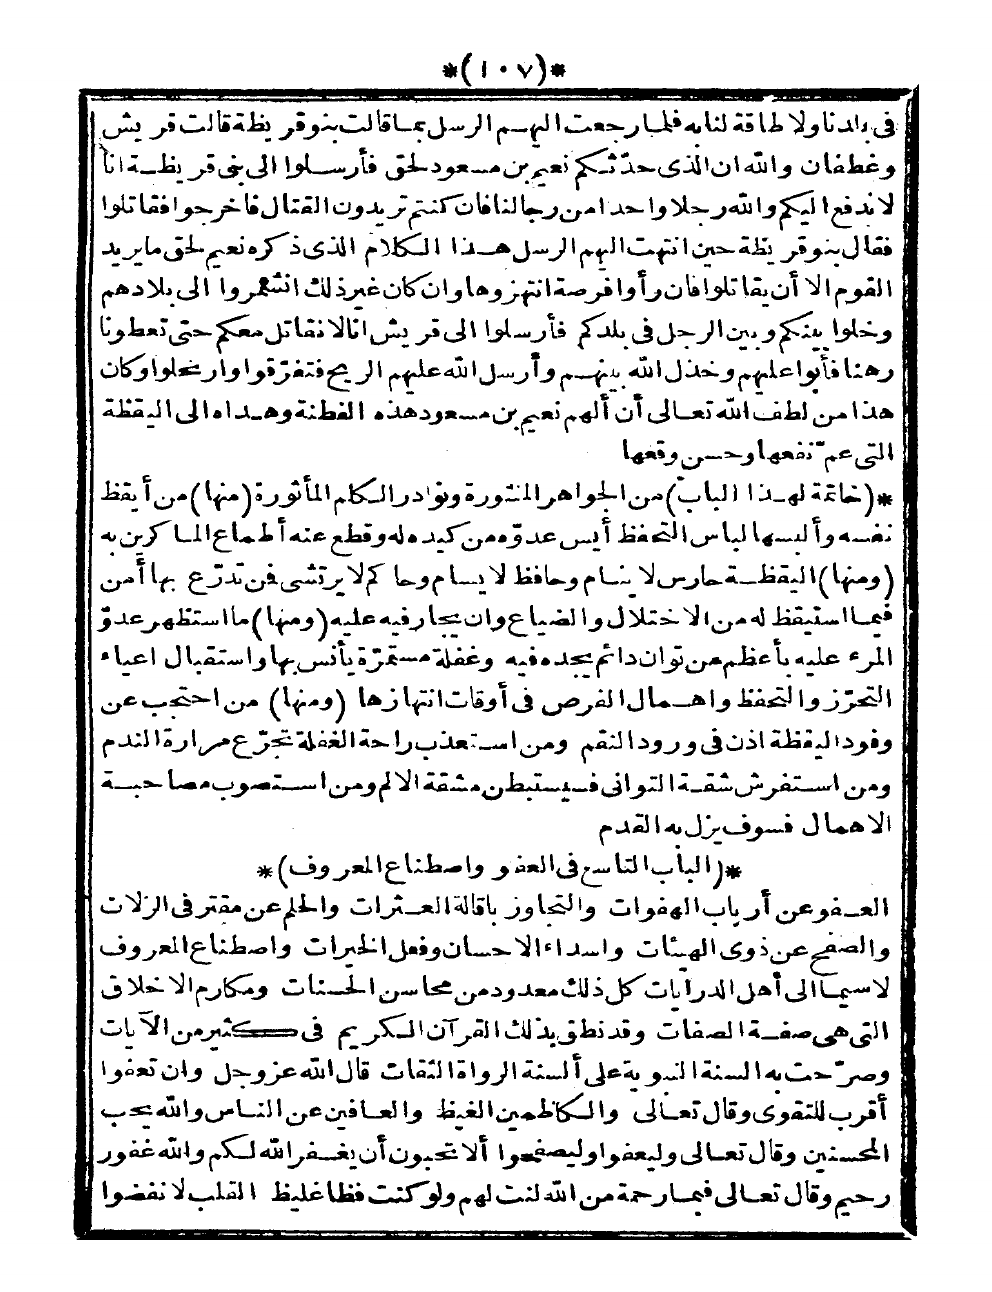 *(١٠٧)*
فى بلدنا ولا طاقة لنا به فلما رجعت اليهم الرسل بما قالت بنو قريظة قالت قريش
وغطفان والله ان الذى حدّثكم نعيم بن مسعود لحق فأرسلوا الى بنى قريظة انا
لا ندفع اليكم والله رجلا واحدا من رجالنا فان كنتم تريدون القتال فاخرجوا فقاتلوا
فقال بنو قريظة حين انتهت اليهم الرسل هذا الكلام الذى ذكره نعيم لحق ما يريد
القوم الا أن يقاتلوا فان رأوا فرصة انتهزوها وان كان غير ذلك انشمروا الى بلادهم
وخلوا بينكم وبين الرجل فى بلدكم فأرسلوا الى قريش انا لا نقاتل معكم حتى تعطونا
رهنا فأبوا عليهم وخذل الله بينهم وأرسل الله عليهم الريح فتفرّقوا وارتحلوا وكان
هذا من لطف الله تعالى أن ألهم نعيم بن مسعود هذه الفطنة وهداه الى اليقظة
التى عمّ نفعها وحسن وقعها
*(خاتمة لهذا الباب) من الجواهر المنثورة ونوادر الكلم المأثورة (منها) من أيقظ
نفسه وألبسها لباس التحفظ أيس عدوّه من كيده له وقطع عنه أطماع الماكرين به
(ومنها) اليقظة حارس لا ينام وحافظ لا يسام وحاكم لا يرتشى فن تدرّع بها أمن
فيما استيقظ له من الاختلال والضياع وان يجار فيه عليه (ومنها) ما استظهر عدوّ
المرء عليه بأعظم من توان دائم يجده فيه وغفلة مستمرّة يأنس بها واستقبال اعياء
التحرّز والتحفظ واهمال الفرص فى أوقات انتهازها (ومنها) من احتجب عن
وفود اليقظة اذن فى ورود النقم ومن استعذب راحة الغفلة تجرّع مرارة الندم
ومن استفرش شقة التوانى فسيستبطن مشقة الالم ومن استصوب مصاحبة
الاهمال فسوف يزل به القدم
*(الباب التاسع فى العفو واصطناع المعروف)*
العفو عن أرباب الهفوات والتجاوز باقالة العثرات والحلم عن مقتر فى الزلات
والصفح عن ذوى الهيئات واسداء الاحسان وفعل الخيرات واصطناع المعروف
لا سيما الى أهل الدرايات كل ذلك معدود من محاسن الحسنات ومكارم الاخلاق
التى هى صفة الصفات وقد نطق بذلك القرآن الكريم فى كثير من الآيات
وصرّحت به السنة النبوية على ألسنة الرواة الثقات قال الله عز وجل وان تعفوا
أقرب للتقوى وقال تعالى والكاظمين الغيظ والعافين عن الناس والله يحب
المحسنين وقال تعالى وليعفوا وليصفحوا ألا تحبون أن يغفر الله لكم والله غفور
رحيم وقال تعالى فبما رحمة من الله لنت لهم ولو كنت فظا غليظ القلب لانفضوا